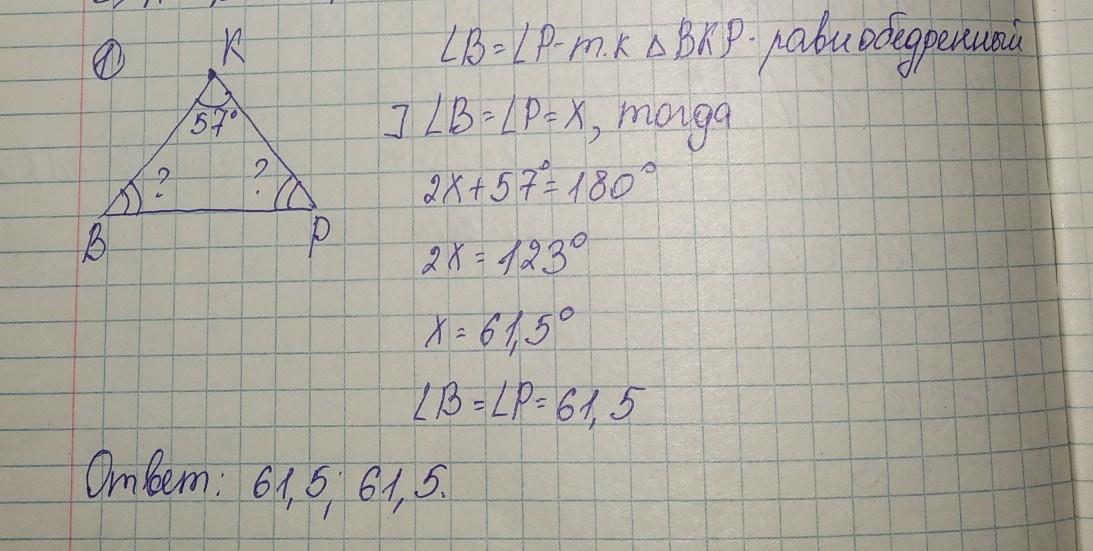 ① К
57°
? ?
В Р
∠B = ∠P - т.к △ ВКР - равнобедренный
] ∠B = ∠P = X, тогда
2X + 57° = 180°
2X = 123°
X = 61,5°
∠B = ∠P = 61,5
Ответ: 61,5; 61,5.